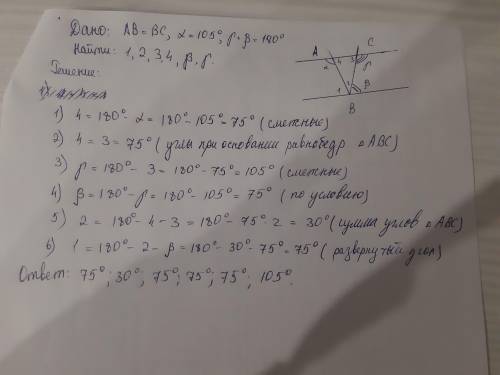 Дано: AB=BC, α=105°, γ+β=180°
Найти: 1, 2, 3, 4, β, γ.
Решение:
A C
α 4 3 γ
1 2 β
B
1) 4=180°-α=180°-105°=75° (сметные)
2) 4=3=75° (углы при основании равнобедр ΔABC)
3) γ=180°-3=180°-75°=105° (сметные)
4) β=180°-γ=180°-105°=75° (по условию)
5) 2=180°-4-3=180°-75°·2=30° (сумма углов ΔABC)
6) 1=180°-2-β=180°-30°-75°=75° (развернутый угол)
Ответ: 75°; 30°; 75°; 75°; 75°; 105°.